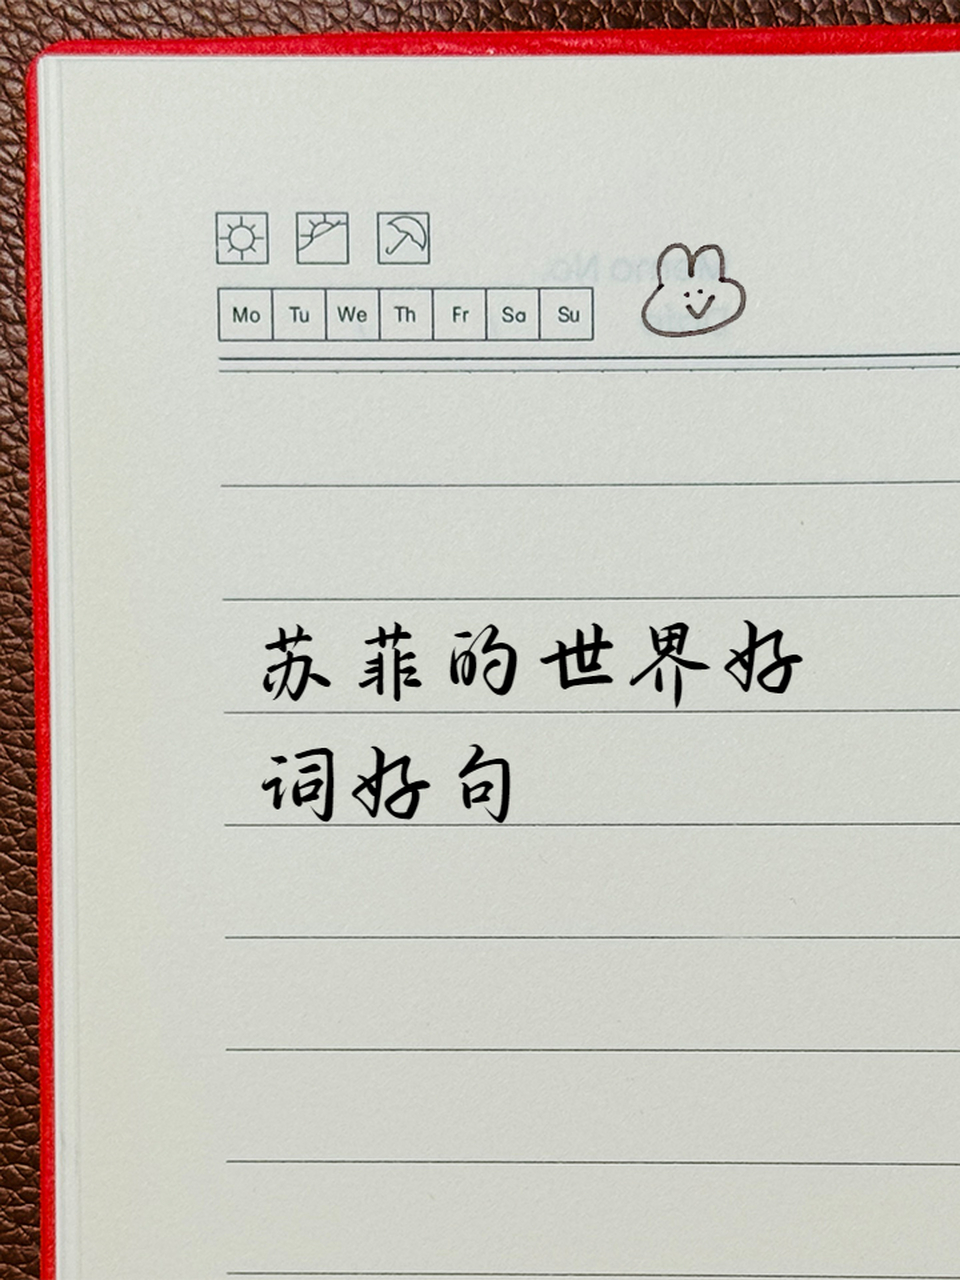 Mo Tu We Th Fr Sa Su
苏菲的世界好
词好句